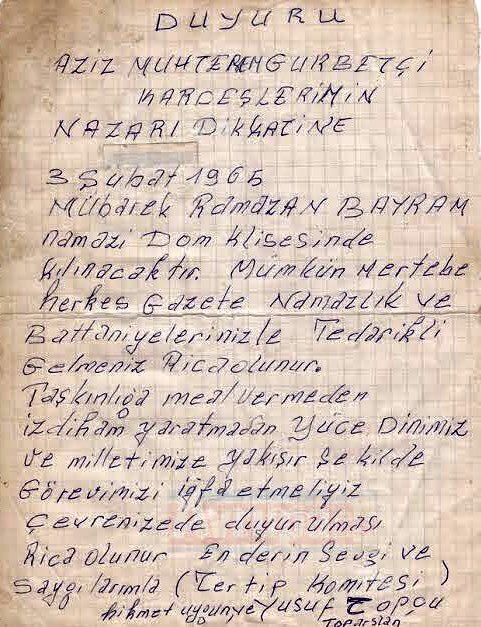 DUYURU
AZİZ MUHTEREM GURBETÇİ
KARDEŞLERİMİN
NAZARI DİKKATİNE
3 Şubat 1965
Mübarek Ramazan BAYRAM
namazi Dom Klisesinde
kılınacaktır. Mümkün Mertebe
herkes Gazete Namazlık ve
Battaniyelerinizle Tedarikli
Gelmeniz Ricaolunur.
Taşkınlığa meal vermeden
izdiham yaratmadan Yüce Dinimiz
ve milletimize yakışır şekilde
Görevimizi igfa etmeliyiz
Çevrenizede duyurulması
Rica olunur En derin Sevgi ve
Saygılarımla (Tertip Komitesi)
hikmet uygun ve Yusuf Topçu
Toparslan